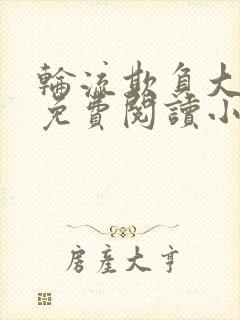 輪流欺負大
免費閱讀小
房產大亨